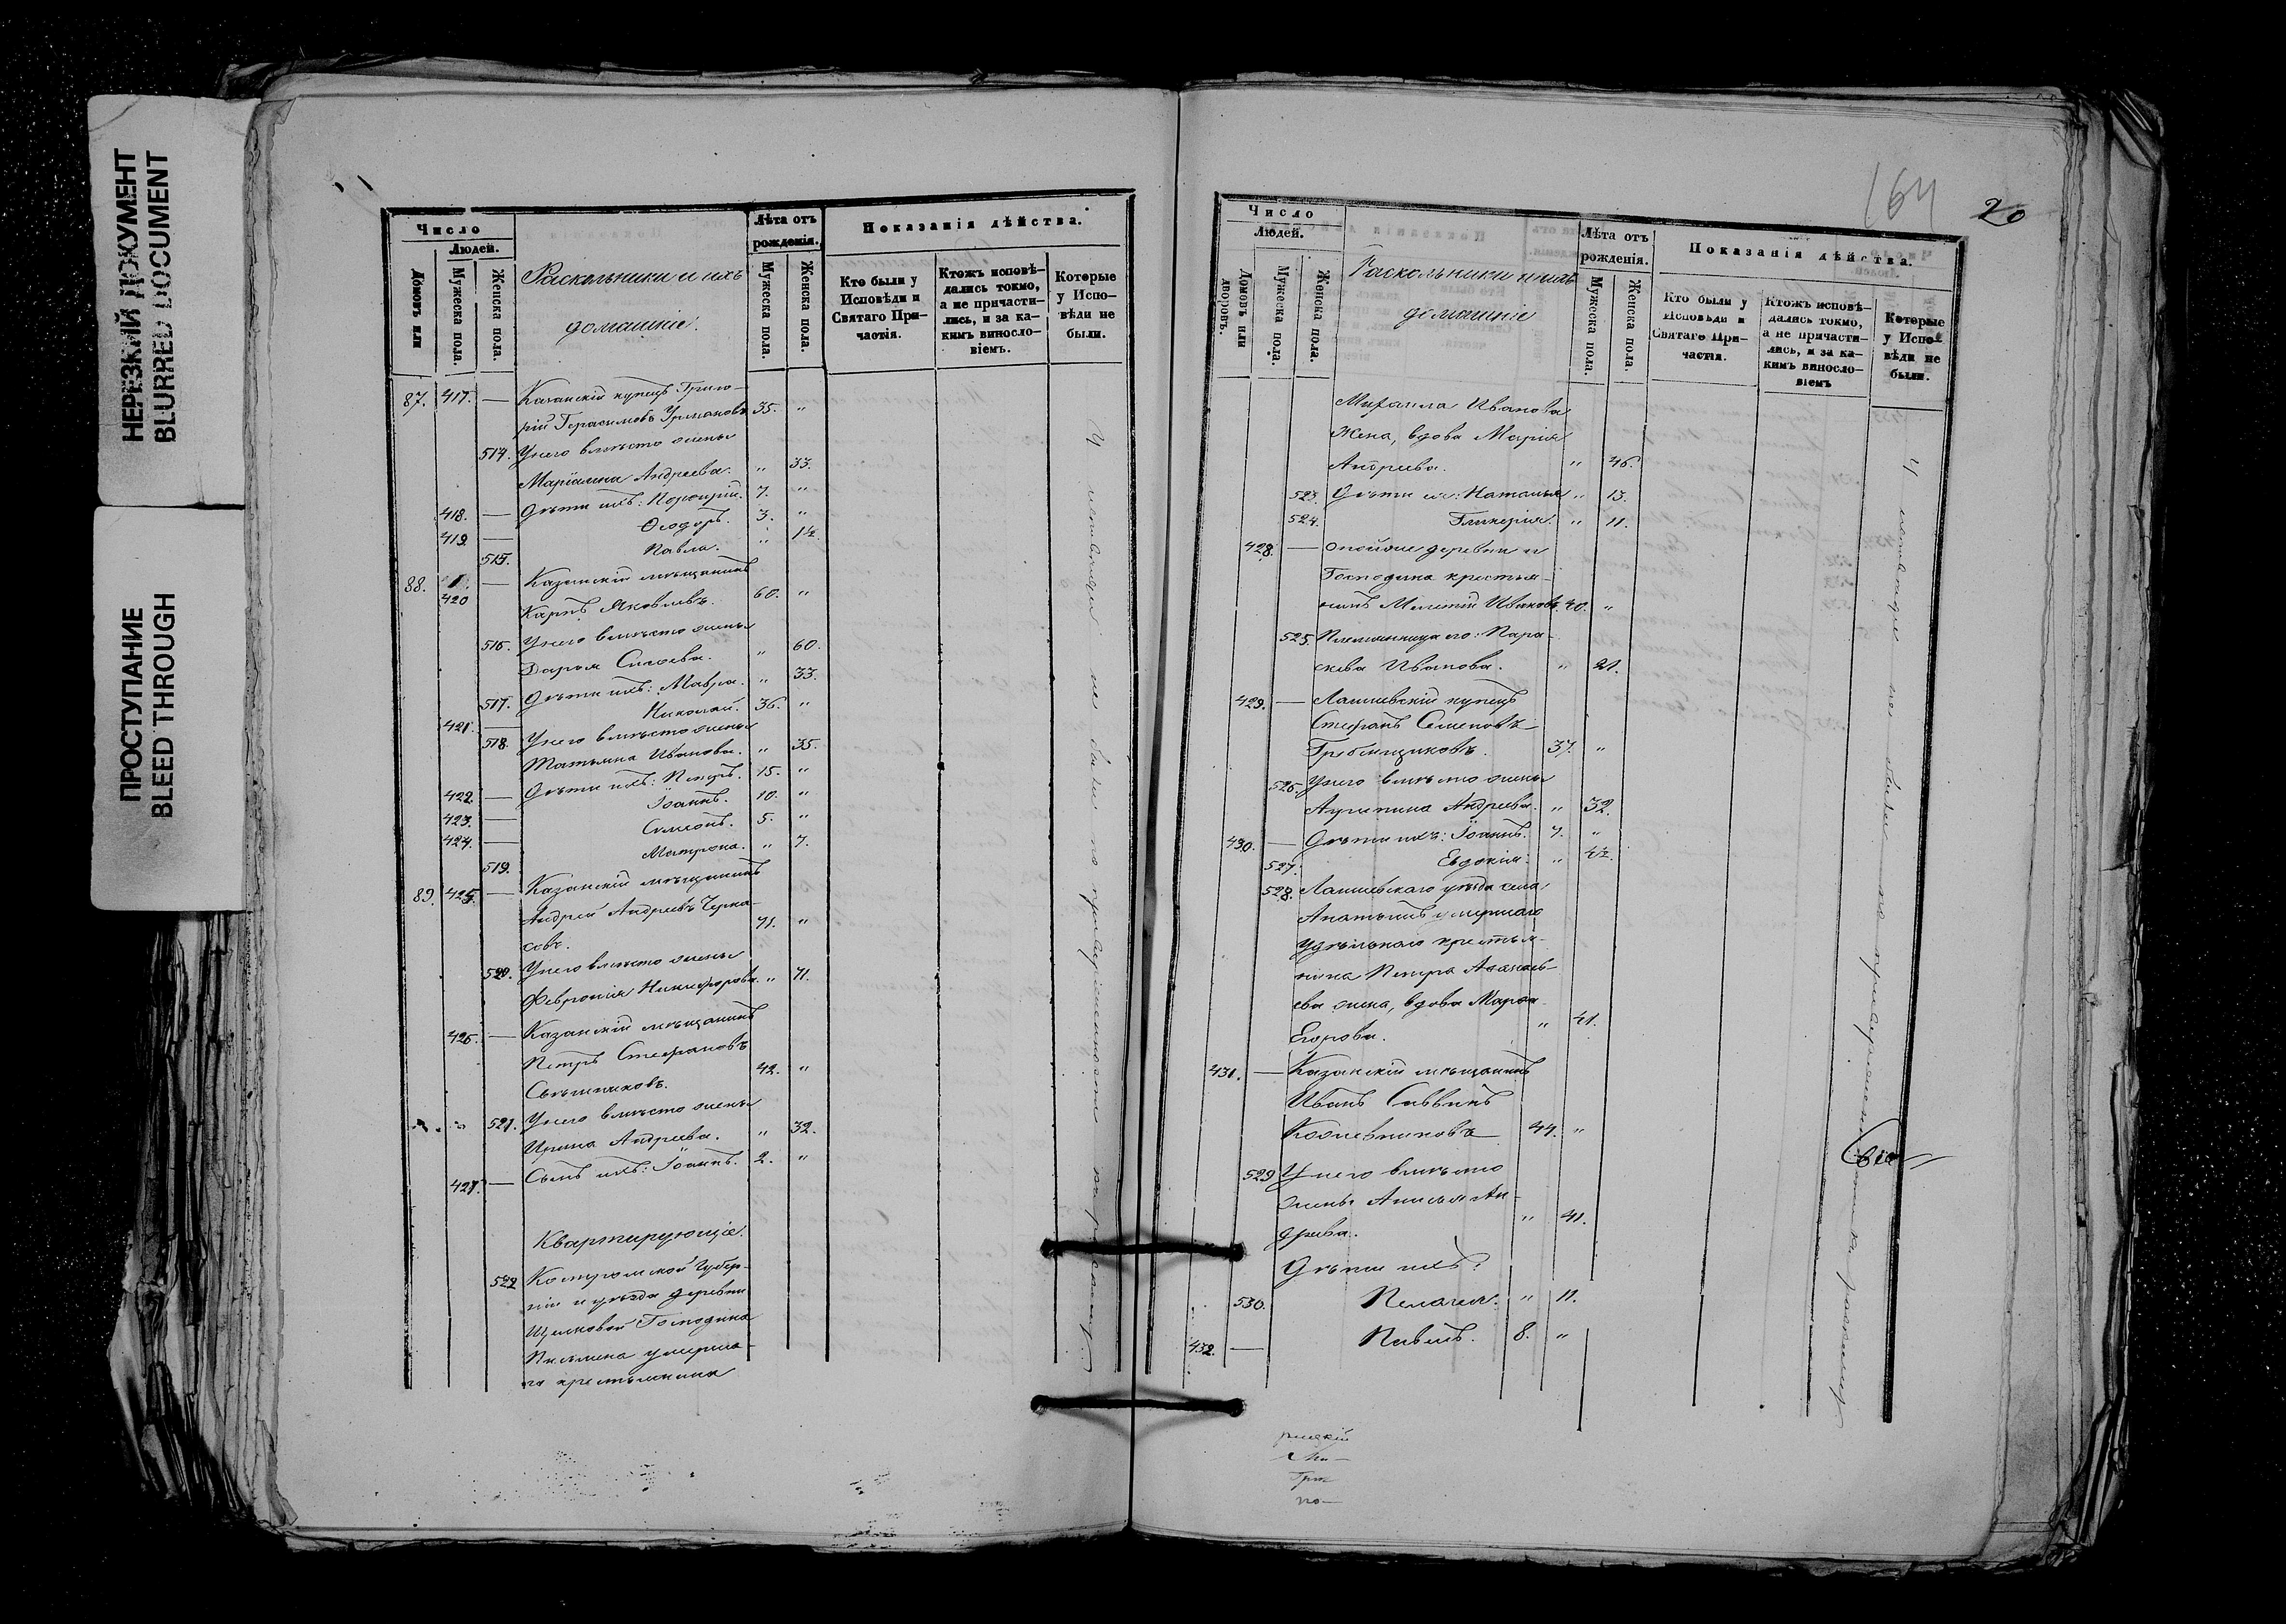 НЕРЕЗКИЙ ДОКУМЕНТ
BLURRED DOCUMENT
ПРОСТУПАНИЕ
BLEED THROUGH
Число
Людей.
Домовъ или
Мужеска пола.
Женска пола.
Раскольники и ихъ
домашніе.
Лѣта отъ
рожденія.
Мужеска пола.
Женска пола.
Показанія дѣйства.
Кто были у
Исповѣди и
Святаго При-
частія.
Ктожъ исповѣ-
дались токмо,
а не причасти-
лись, и за ка-
кимъ виносло-
віемъ.
Которые
у Испо-
вѣди не
были.
87. 417. — Казанскій купецъ Григо-
рій Герасимовъ Урмановъ 35. "
514. У него вмѣсто жены
Маріамна Андреева. " 33.
418. — Дѣти ихъ: Порфирій. 7. "
419. — Ѳеодоръ. 3. "
515. Павла. " 1½
88. 420 — Казанскій мѣщанинъ
Карпъ Яковлевъ. 60. "
516. У него вмѣсто жены
Дарья Сысоева. " 60.
517. Дѣти ихъ: Мавра. " 33.
421. — Николай. 36. "
518. У него вмѣсто жены
Татьяна Иванова. " 35.
422. — Дѣти ихъ: Петръ. 15. "
423. — Іоаннъ. 10. "
424. — Симеонъ. 5. "
519. Матрона. " 7.
89. 425. — Казанскій мѣщанинъ
Андрей Андреевъ Черка-
совъ. 71. "
520. У него вмѣсто жены
Февронія Никифорова. " 71.
426. — Казанскій мѣщанинъ
Петръ Стефановъ
Свѣшниковъ. 42. "
521. У него вмѣсто жены
Ирина Андреева. " 32.
427. — Сынъ ихъ: Іоаннъ. 2. "
Квартирующіе.
522 Костромской Губер-
ніи и уѣзда деревни
Щелковой Господина
умерша-
го крестьянина
У исповѣди не были по приверженности къ расколу
164
20
Число
Людей.
Домовъ или
дворовъ.
Мужеска пола.
Женска пола.
Раскольники и ихъ
домашніе
Лѣта отъ
рожденія.
Мужеска пола.
Женска пола.
Показанія дѣйства.
Кто были у
Исповѣди и
Святаго При-
частія.
Ктожъ исповѣ-
дались токмо,
а не причасти-
лись, и за ка-
кимъ виносло-
віемъ
Которые
у Испо-
вѣди не
были.
Михаила Иванова
жена, вдова Марія
Андреева. " 46.
523. Дѣти ея: Наталья " 13.
524. Гликерія. " 11.
428. — Оной же деревни и
Господина крестья-
нинъ Мелетій Ивановъ. 40. "
525. Племянница его: Пара-
скева Иванова. " 21.
429. — Лаишевскій купецъ
Стефанъ Семеновъ
Гребенщиковъ. 37. "
526. У него вмѣсто жены
Агрипина Андреева. " 32.
430. — Дѣти ихъ: Іоаннъ. 7. "
527. Евдокія. " 4½.
528. Лаишевскаго уѣзда села
умершаго
удѣльнаго крестья-
нина Петра Аѳанась-
ева жена, вдова Марѳа
Егорова. " 41.
431. — Казанскій мѣщанинъ
Иванъ Саввинъ
Кожевниковъ 44. "
529 У него вмѣсто
жены Анисья Ан-
дреева. " 41.
Дѣти ихъ:
530. Пелагея. " 11.
432. — Павелъ. 8. "
У исповѣди не были по приверженности къ расколу